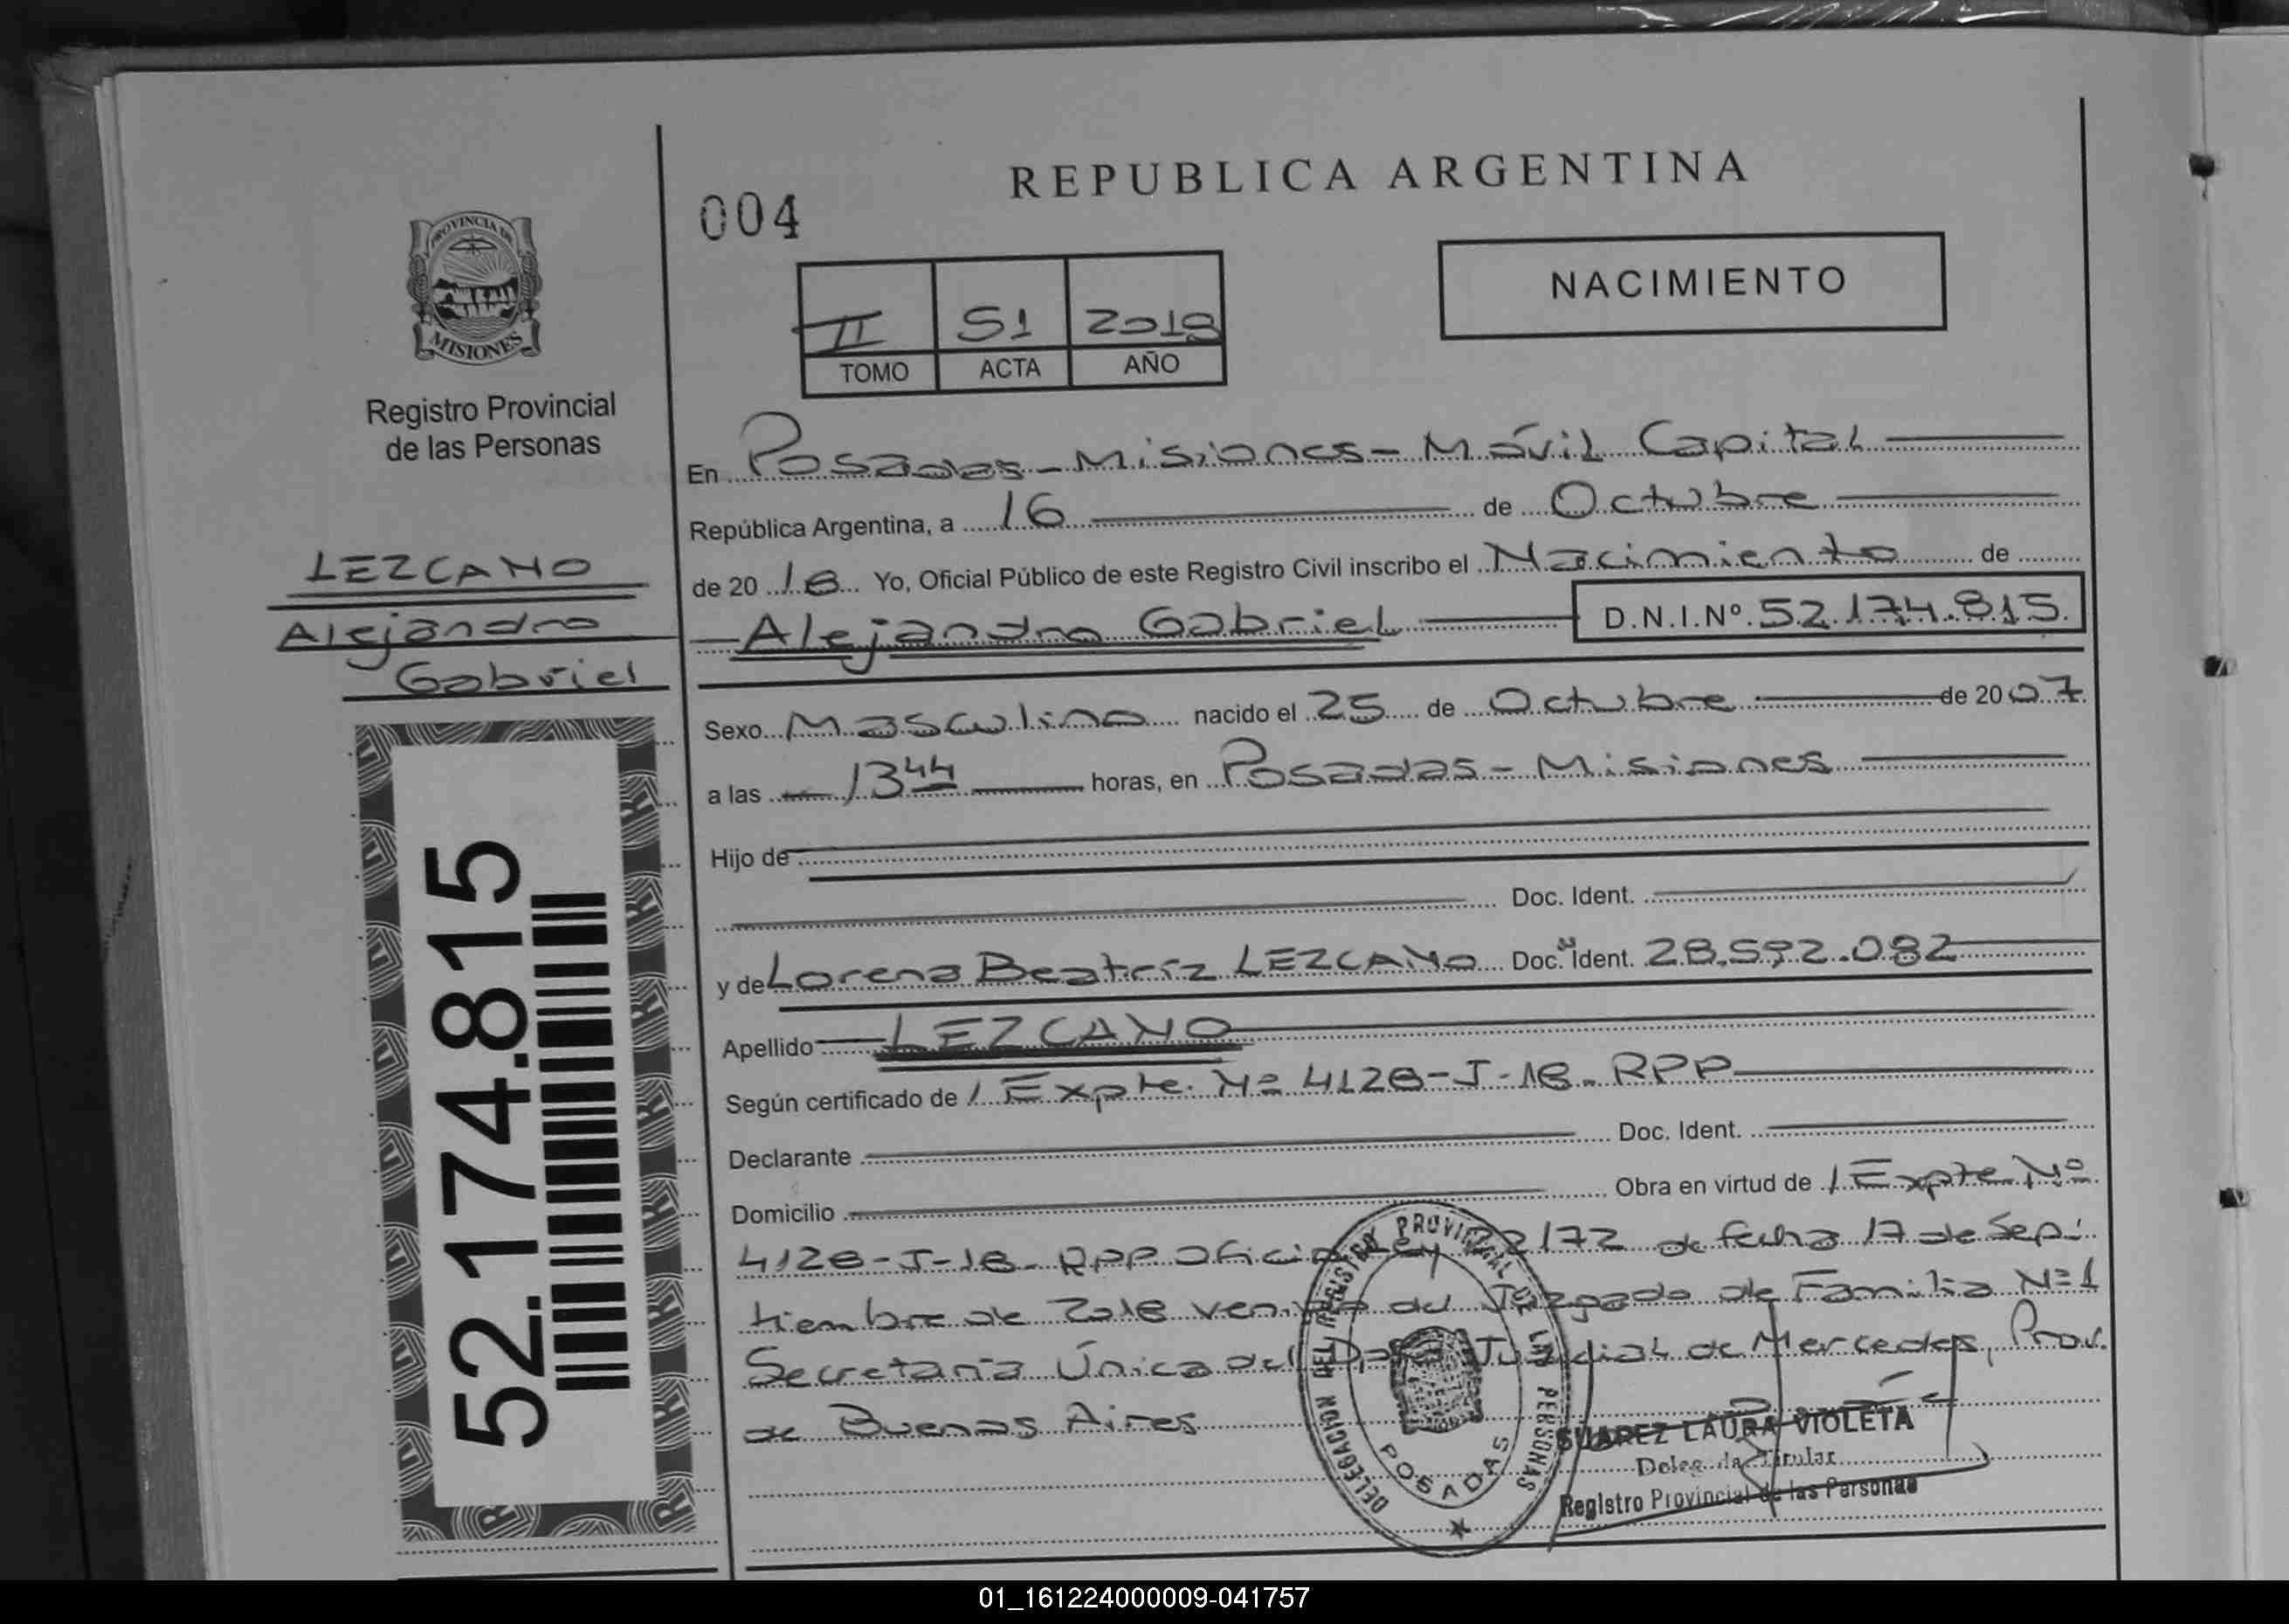 REPUBLICA ARGENTINA
004
NACIMIENTO
II S1 2018
TOMO ACTA AÑO
PROVINCIA DE
MISIONES
Registro Provincial
de las Personas
LEZCANO
Alejandro
Gabriel
52.174.815
En Posadas - Misiones - Móvil Capital
República Argentina, a 16 de Octubre
de 20 18 Yo, Oficial Público de este Registro Civil inscribo el Nacimiento de
Alejandro Gabriel D.N.I.Nº 52.174.815
Sexo Masculino nacido el 25 de Octubre de 20 07
a las 13 44 horas, en Posadas - Misiones
Hijo de
Doc. Ident.
y de Lorena Beatriz LEZCANO Doc. Ident. 28.592.082
Apellido LEZCANO
Según certificado de / Expte. Nº 4128-J-18. RPP
Declarante Doc. Ident.
Domicilio Obra en virtud de / Expte Nº
4128-J-18. RPP. Oficio Ley 22172 de fecha 17 de Sep:
tiembre de 2018 venido del Juzgado de Familia Nº1
Secretaría Única del Dpto Judicial de Mercedes, Prov.
de Buenos Aires
DELEGACION DEL REGISTRO PROVINCIAL DE LAS PERSONAS
POSADAS
SUAREZ LAURA VIOLETA
Delegada Titular
Registro Provincial de las Personas
01_161224000009-041757